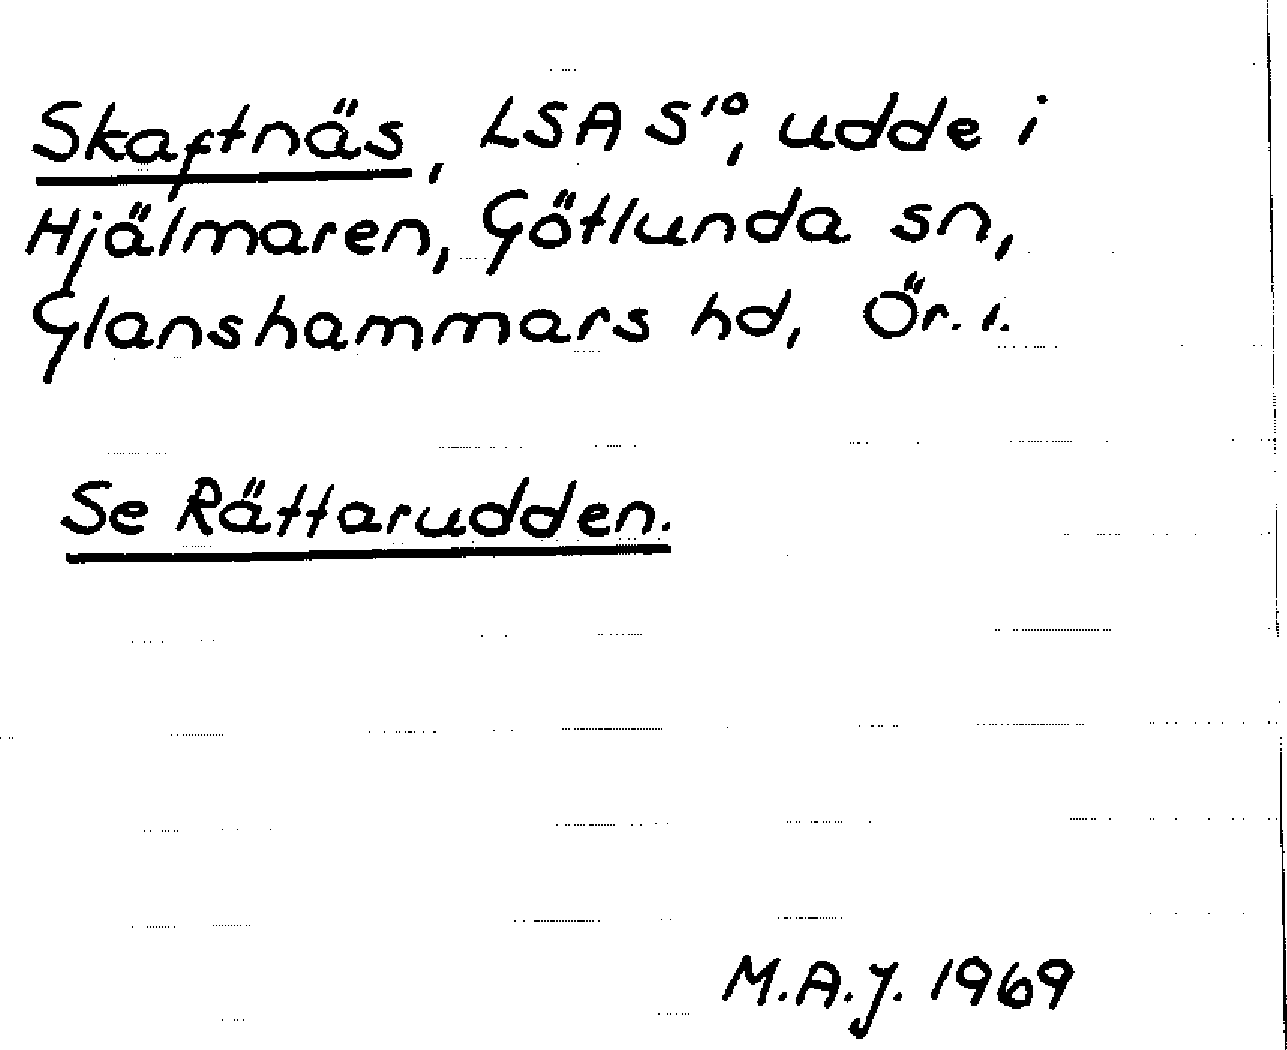 Skaftnäs, LSA S¹⁰, udde i
Hjälmaren, Götlunda sn,
Glanshammars hd, Ör. l.
Se Rättarudden.
M.A.J. 1969